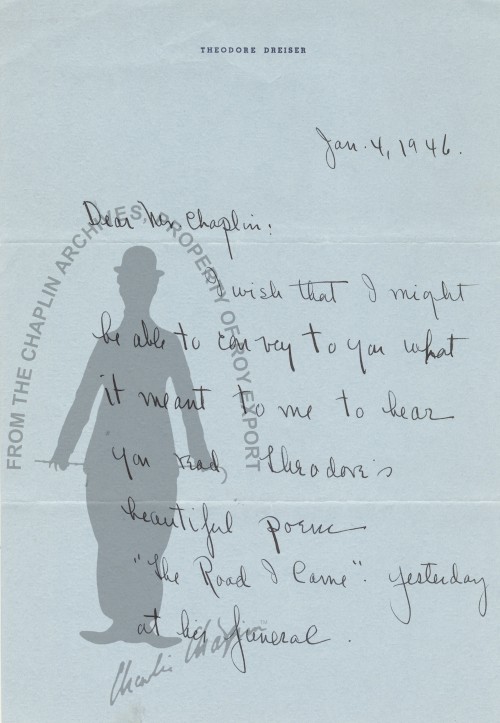 THEODORE DREISER
Jan. 4, 1946.
Dear Mr Chaplin:
I wish that I might
be able to convey to you what
it meant to me to hear
you read Theodore's
beautiful poem
"The Road I Came". yesterday
at his funeral.
FROM THE CHAPLIN ARCHIVES, PROPERTY OF ROY EXPORT
Charlie Chaplin